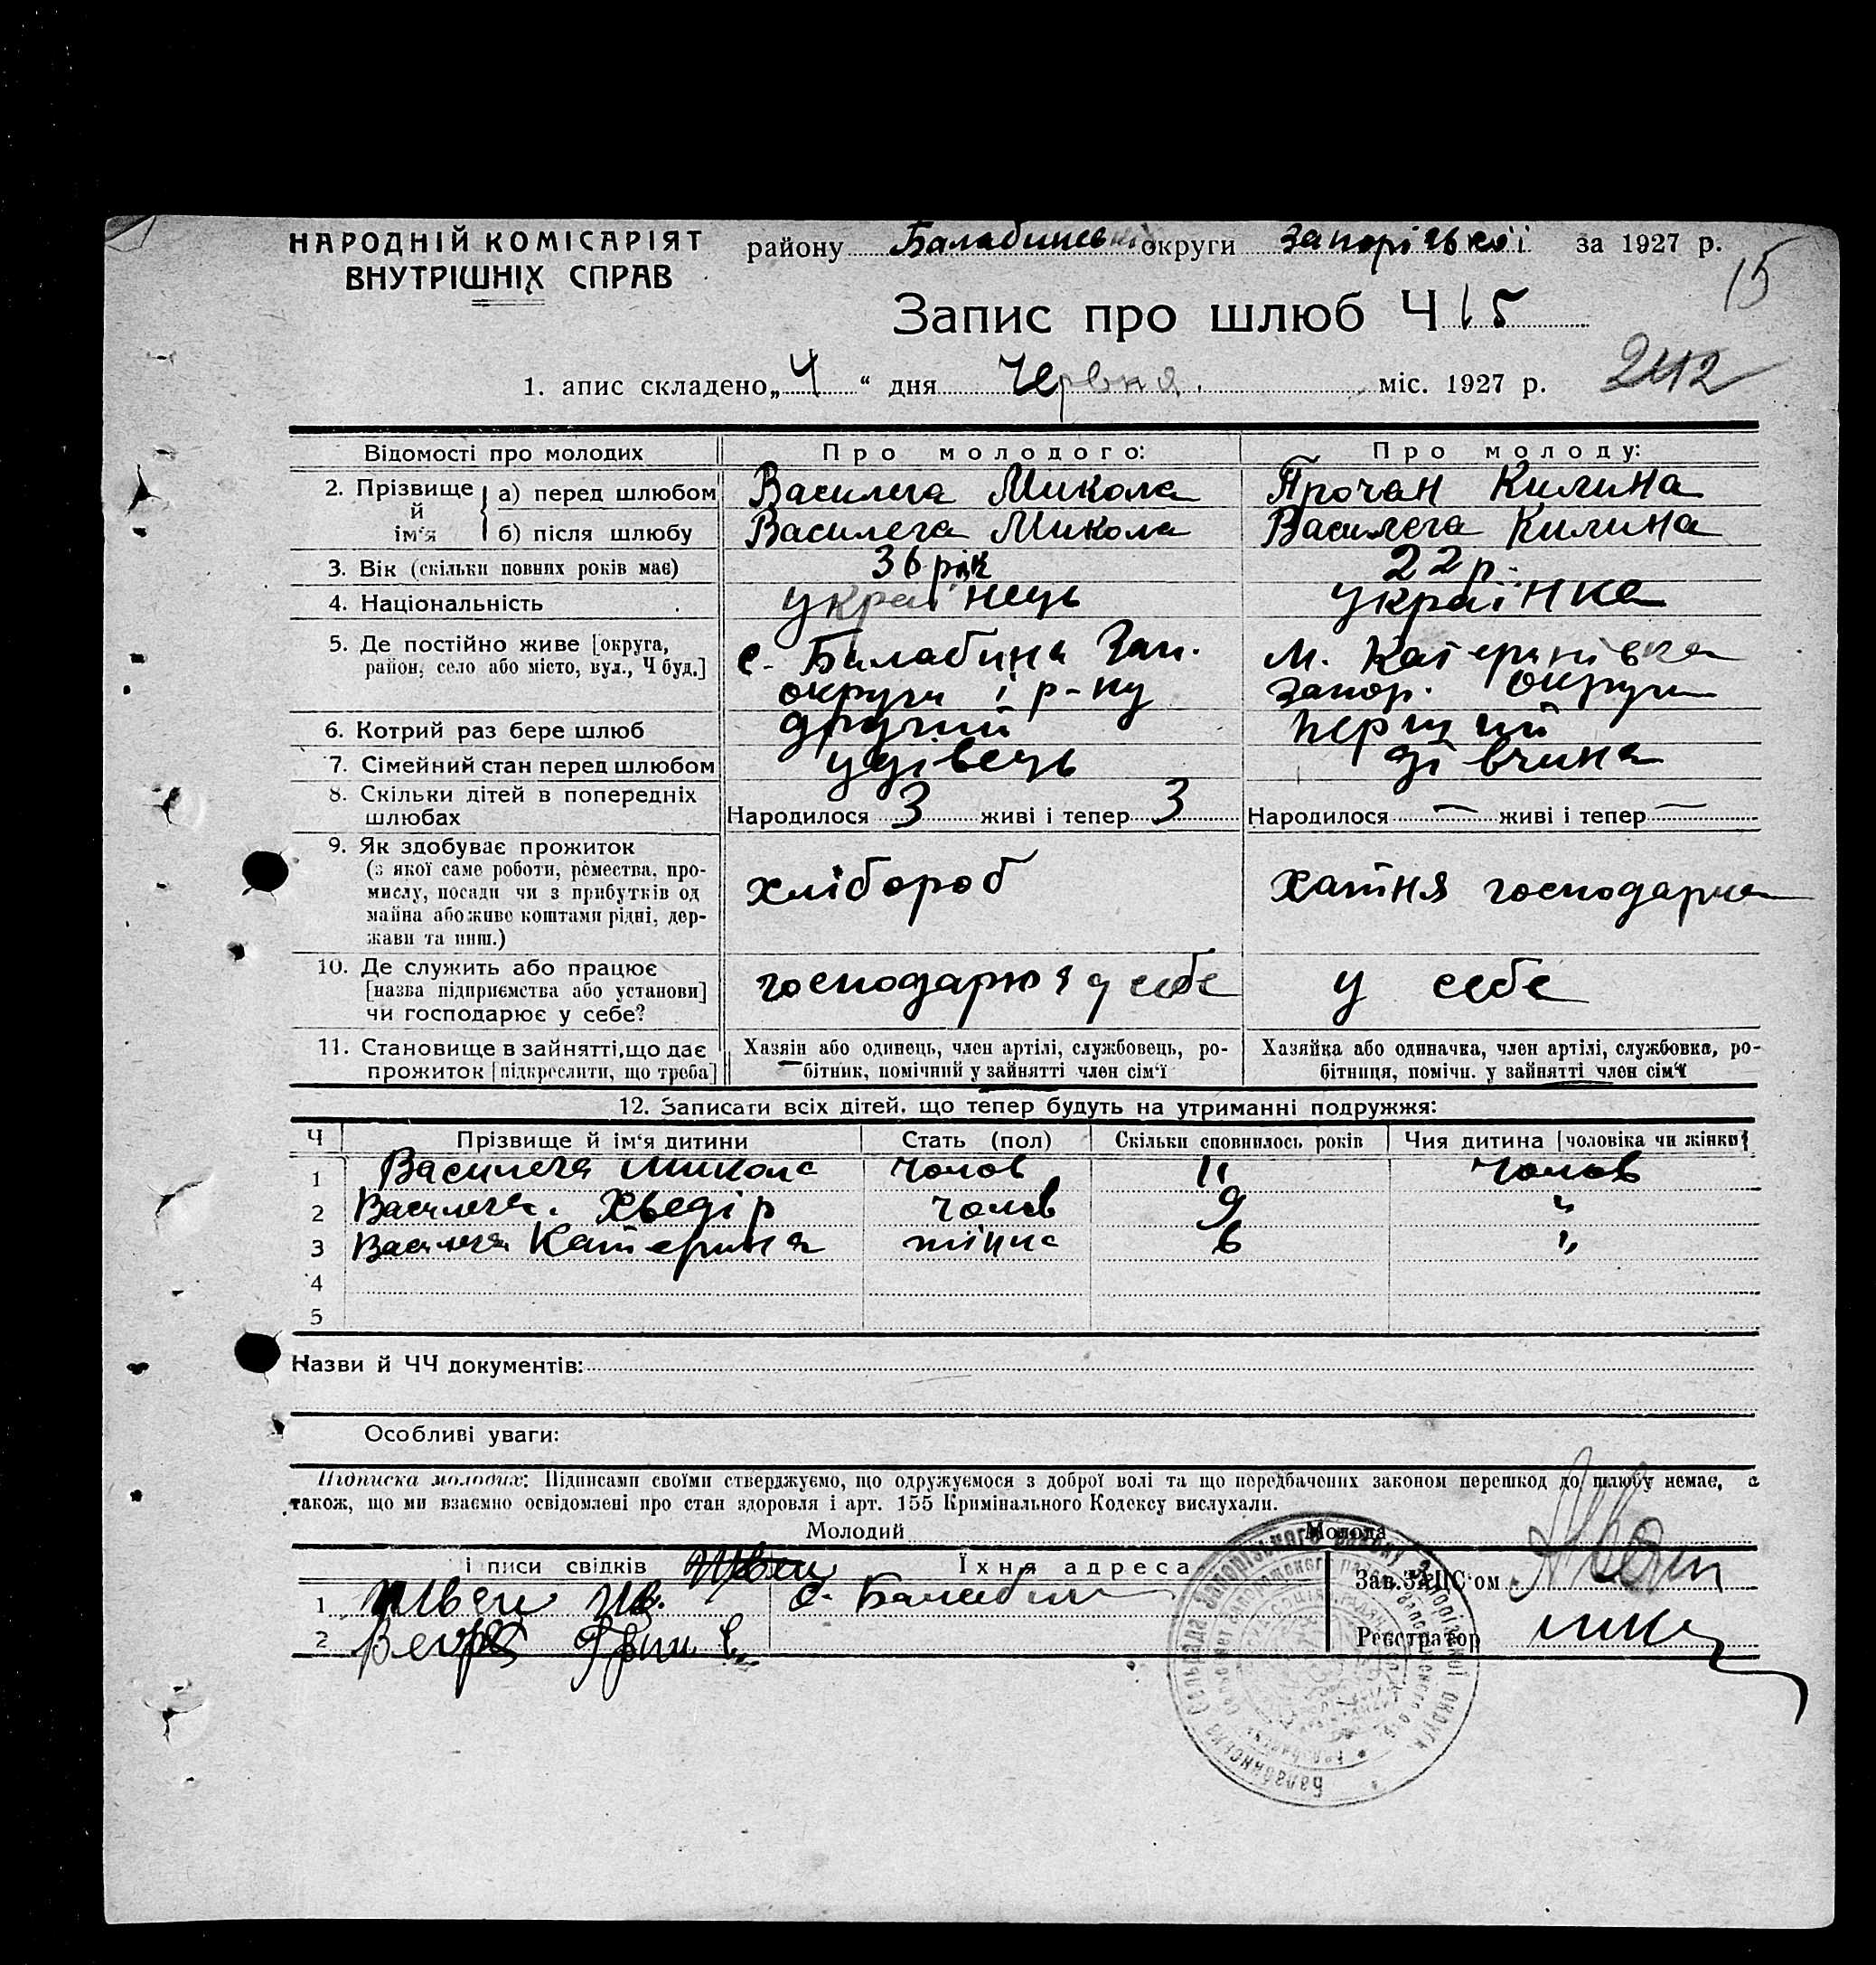 НАРОДНІЙ КОМІСАРІЯТ
ВНУТРІШНІХ СПРАВ
району Балабинськ округи Запорізької за 1927 р.
15
Запис про шлюб Ч 15
242
1. апис складено „4“ дня Червня міс. 1927 р.
Відомості про молодих
Про молодого:
Про молоду:
2. Прізвище й ім'я
а) перед шлюбом
Василега Микола
Прочан Килина
б) після шлюбу
Василега Микола
Василега Килина
3. Вік (скільки повних років має)
36 рік
22 р.
4. Національність
українець
українка
5. Де постійно живе [округа,
район, село або місто, вул., Ч буд.]
с. Балабина Зап.
округи і р-ну
м. Катеринівка
Запор. округи
6. Котрий раз бере шлюб
другий
перший
7. Сімейний стан перед шлюбом
удівець
дівчина
8. Скільки дітей в попередніх
шлюбах
Народилося 3 живі і тепер 3
Народилося — живі і тепер —
9. Як здобуває прожиток
(з якої саме роботи, ремества, про-
мислу, посади чи з прибутків од
майна або живе коштами рідні, дер-
жави та инш.)
хлібороб
хатня господарка
10. Де служить або працює
[назва підприємства або установи]
чи господарює у себе?
господарює у себе
у себе
11. Становище в зайнятті, що дає
прожиток [підкреслити, що треба]
Хазяін або одинець, член артілі, службовець, ро-
бітник, помічний у зайнятті член сім'ї
Хазяйка або одиначка, член артілі, службовка, ро-
бітниця, помічн. у зайнятті член сім'ї
12. Записати всіх дітей, що тепер будуть на утриманні подружжя:
Ч Прізвище й ім'я дитини Стать (пол) Скільки сповнилось років Чия дитина [чоловіка чи жінки]
1 Василега Микола чолов 11 чолов
2 Василега Хведір чолов 9 "
3 Василега Катерина жіноча 6 "
4
5
Назви й ЧЧ документів:
Особливі уваги:
Підписка молодих: Підписами своїми стверджуємо, що одружуємося з доброї волі та що передбачених законом перешкод до шлюбу немає, а
також, що ми взаємно освідомлені про стан здоровля і арт. 155 Кримінального Кодексу вислухали.
Молодий
Молода
і писи свідків
Їхня адреса
Зав. ЗАПС'ом
1 Швец Ив. с. Балабин
2
Реєстратор